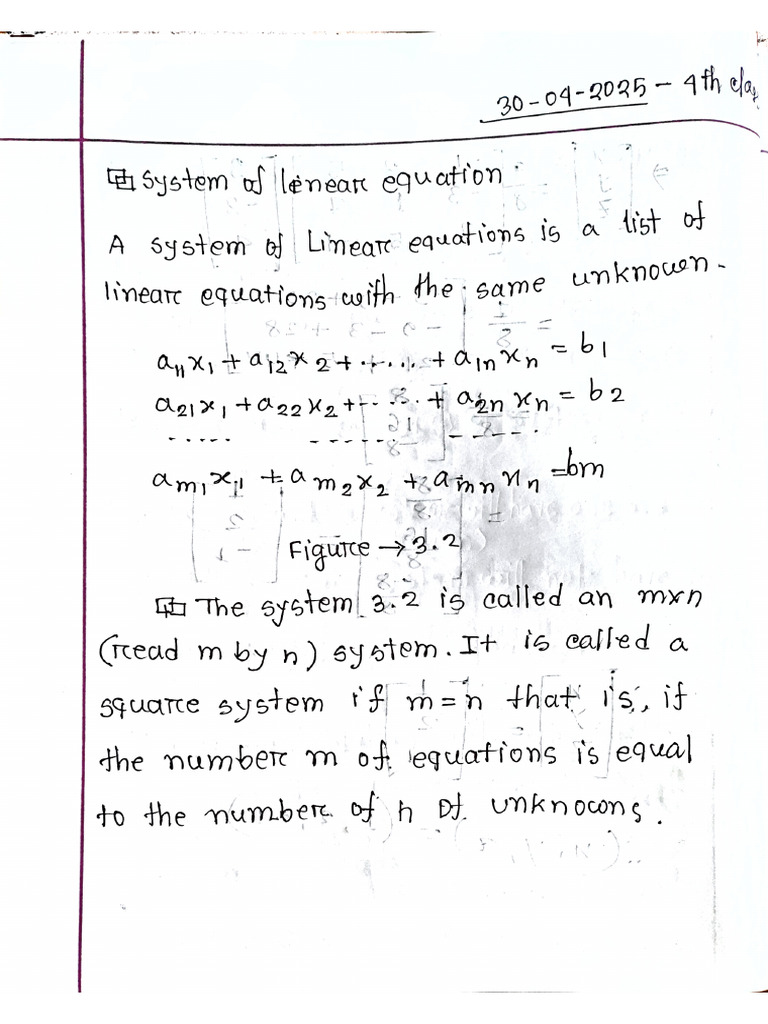 30-04-2025 - 4th clas
System of linear equation.
A system of Linear equations is a list of
linear equations with the same unknowen.
a₁₁x₁ + a₁₂x₂ + ...... + a₁ₙxₙ = b₁
a₂₁x₁ + a₂₂x₂ + ..... + a₂ₙxₙ = b₂
..... ...... -----.
aₘ₁x₁ + aₘ₂x₂ + aₘₙxₙ = bm
Figure → 3.2
The system 3.2 is called an m×n
(read m by n) system. It is called a
square system if m = n that is, if
the number m of equations is equal
to the number of n of unknowns.